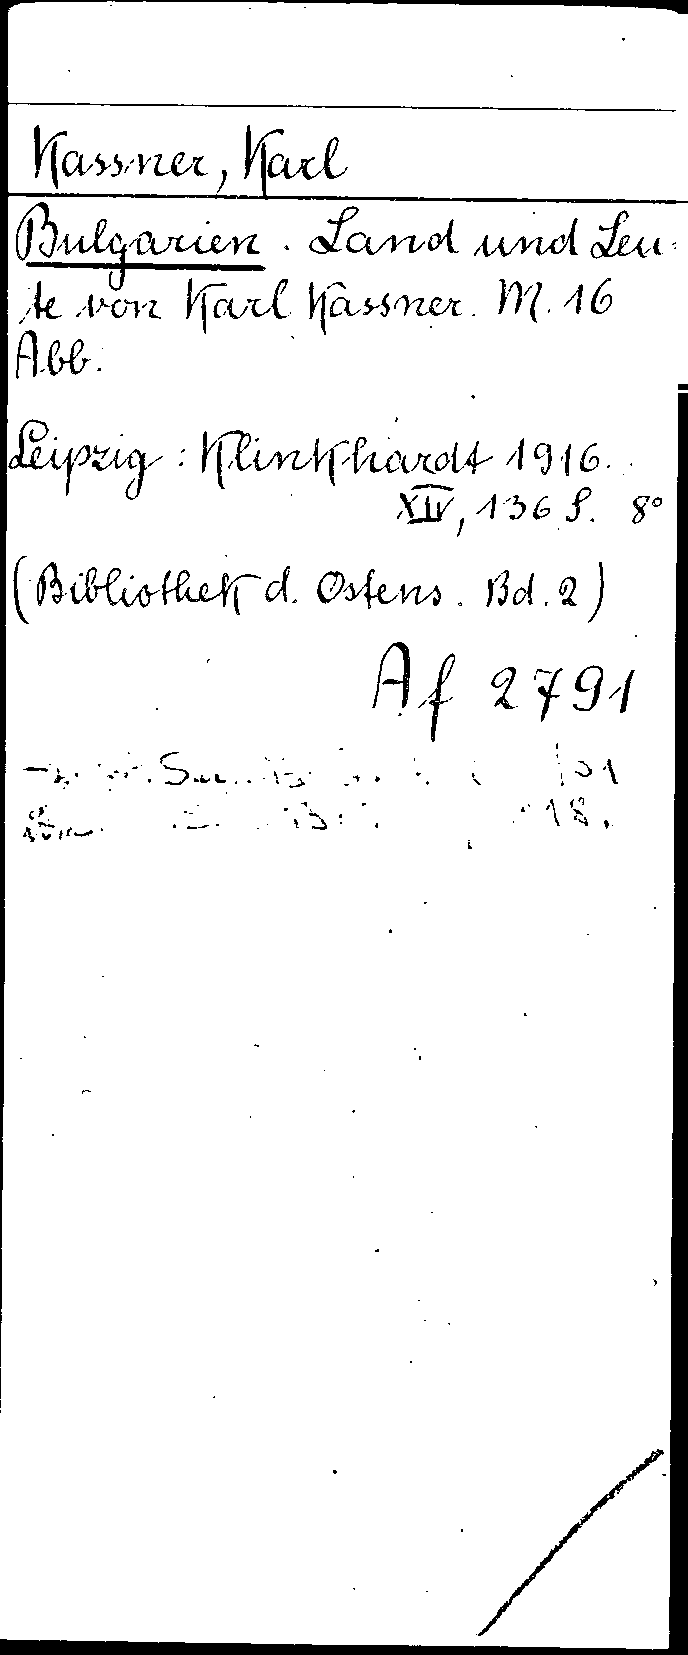 Kassner, Karl
Bulgarien. Land und Leu-
te von Karl Kassner. M. 16
Abb.
Leipzig: Klinkhardt 1916.
XIV, 136 S. 8°
(Bibliothek d. Ostens. Bd. 2)
Af 2791